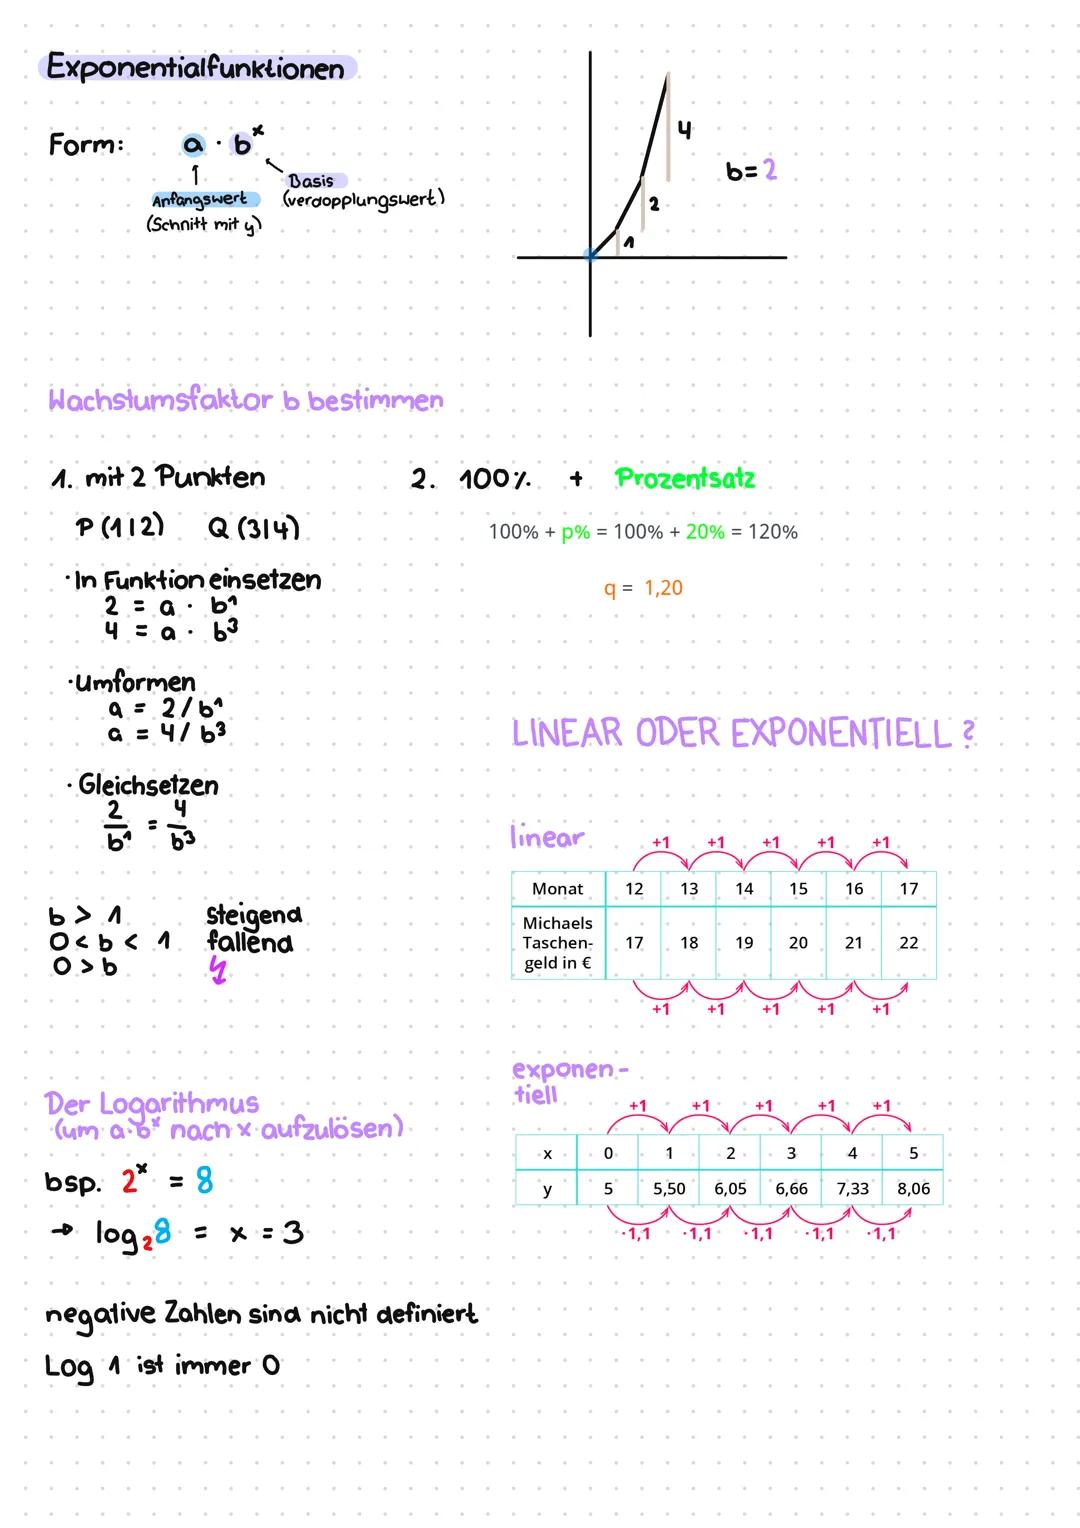 Exponentialfunktionen
Form: a · bˣ
Anfangswert
(Schnitt mit y)
Basis
(verdopplungswert)
4
2
1
b=2
Wachstumsfaktor b bestimmen
1. mit 2 Punkten
P(1|2) Q(3|4)
·In Funktion einsetzen
2 = a · b¹
4 = a · b³
·Umformen
a = 2/b¹
a = 4/b³
· Gleichsetzen
2/b¹ = 4/b³
b > 1 steigend
0 < b < 1 fallend
0 > b ↯
2. 100% + Prozentsatz
100% + p% = 100% + 20% = 120%
q = 1,20
LINEAR ODER EXPONENTIELL ?
linear
+1 +1 +1 +1 +1
Monat 12 13 14 15 16 17
Michaels
Taschen- 17 18 19 20 21 22
geld in €
+1 +1 +1 +1 +1
exponen-
tiell
+1 +1 +1 +1 +1
x 0 1 2 3 4 5
y 5 5,50 6,05 6,66 7,33 8,06
·1,1 ·1,1 ·1,1 ·1,1 ·1,1
Der Logarithmus
(um a·bˣ nach x aufzulösen)
bsp. 2ˣ = 8
→ log₂8 = x = 3
negative Zahlen sind nicht definiert
Log 1 ist immer 0